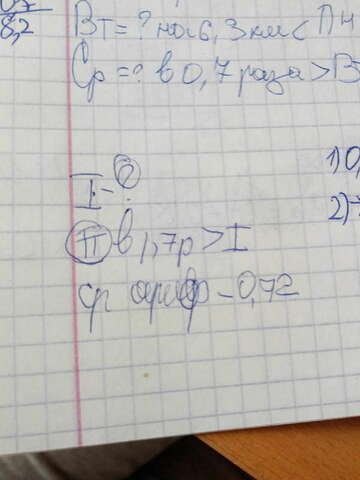 8,2
Вт = ? на 6,3 км < Пн
Ср = ? в 0,7 раза > Вт
1) 0,
I - ?
2) 7
II в 1,7 р > I
ср ариф - 0,72